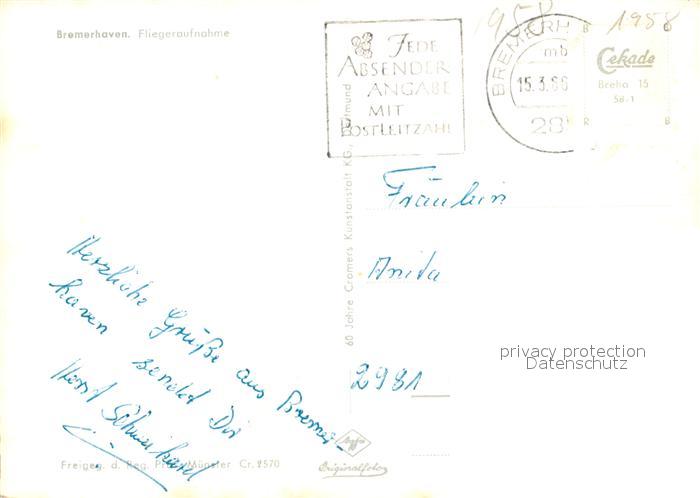 Bremerhaven. Fliegeraufnahme
JEDE
ABSENDER
ANGABE
MIT
POSTLEITZAHL
BREMERH
mb
15.3.66
28
1958
1958
B O
Cekade
Breha 15
58-1
R B
60 Jahre Cramers Kunstanstalt KG, Dortmund
Fräulein
Anita
2981
privacy protection
Datenschutz
Herzliche Grüße aus Bremer-
haven sendet Dir
Horst
Agfa
Originalfoto
Freigeg. d. Reg. Präs. Münster Cr. 2570